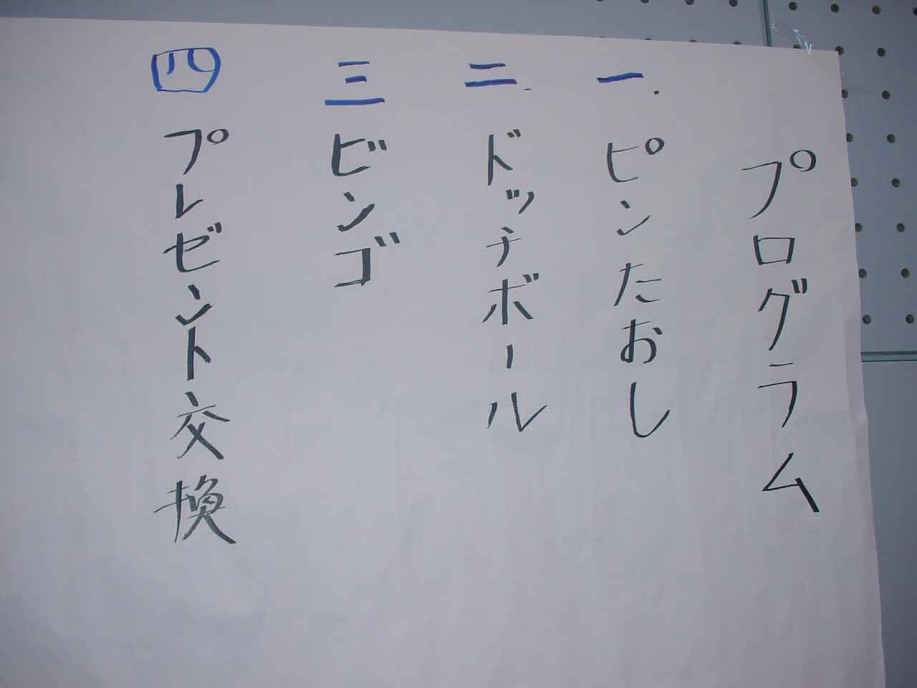 プログラム
一. ピンたおし
二. ドッチボール
三 ビンゴ
四 プレゼント交換